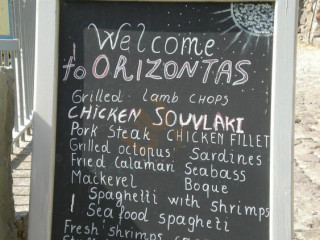 Welcome
to ORIZONTAS
Grilled lamb CHOPS
CHICKEN SOUVLAKI
Pork steak CHICKEN FILLET
Grilled octopus Sardines
Fried calamari Seabass
Mackerel Boque
Spaghetti with shrimps
Sea food spagheti
Fresh shrimps